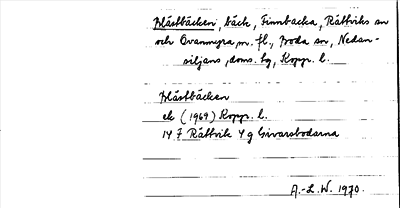 Blåstbäcken, bäck, Finnbacka, Rättviks sn
och Ovanmyra m. fl., Boda sn, Nedan-
siljans, doms. hg, Kopp. l.
Blåstbäcken
ek (1969) Kopp. l.
14 F Rättvik 4 g Sivarsbodarna
A.-L.W. 1970.